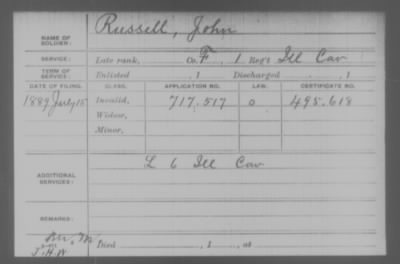 NAME OF SOLDIER: Russell, John
SERVICE: Late rank, Co. F, 1 Reg't Ill Cav
TERM OF SERVICE: Enlisted , 1 Discharged , 1
DATE OF FILING. CLASS. APPLICATION NO. LAW. CERTIFICATE NO.
1889 July 15 Invalid, 717.517 o 495.618
Widow,
Minor,
ADDITIONAL SERVICES: L 6 Ill Cav
REMARKS:
Died , 1 , at
J.H.W